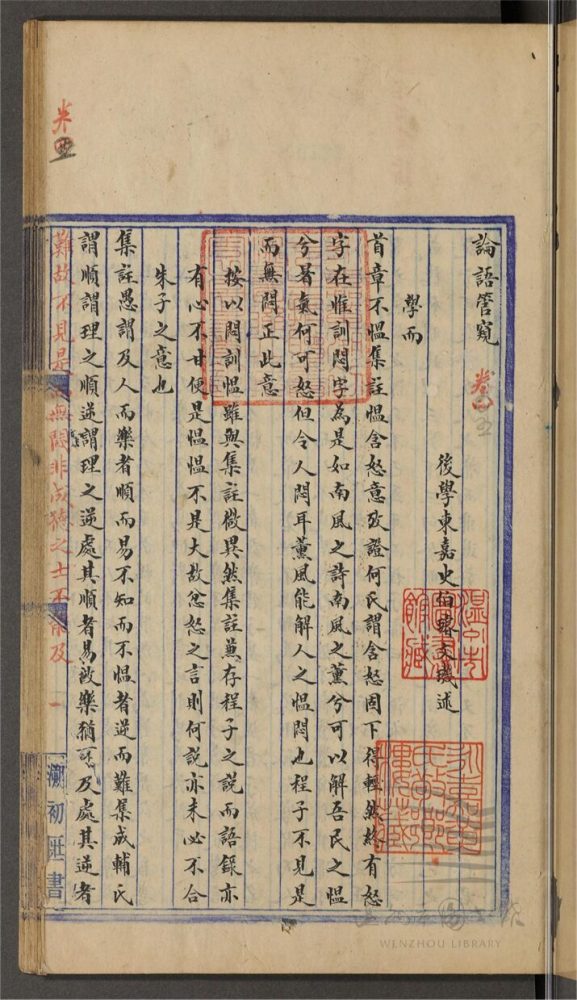 論語管窺 卷
後學東嘉史伯璿文璣述
學而
首章不慍集註慍含怒意攷證何氏謂含怒固下得輕然終有怒
字在惟訓悶字為是如南風之詩南風之薰兮可以解吾民之慍
兮暑氣何可怒但令人悶耳薰風能解人之慍悶也程子不見是
而無悶正此意
按以悶訓慍雖與集註微異然集註兼存程子之說而語錄亦
有心不甘便是慍慍不是大故忿怒之言則何說亦未必不合
朱子之意也
集註愚謂及人而樂者順而易不知而不慍者逆而難集成輔氏
謂順謂理之順逆謂理之逆處其順者易故樂猶可及處其逆者
難故不見是而無悶非成德之士不能及
一
溫州市圖書館藏
WENZHOU LIBRARY